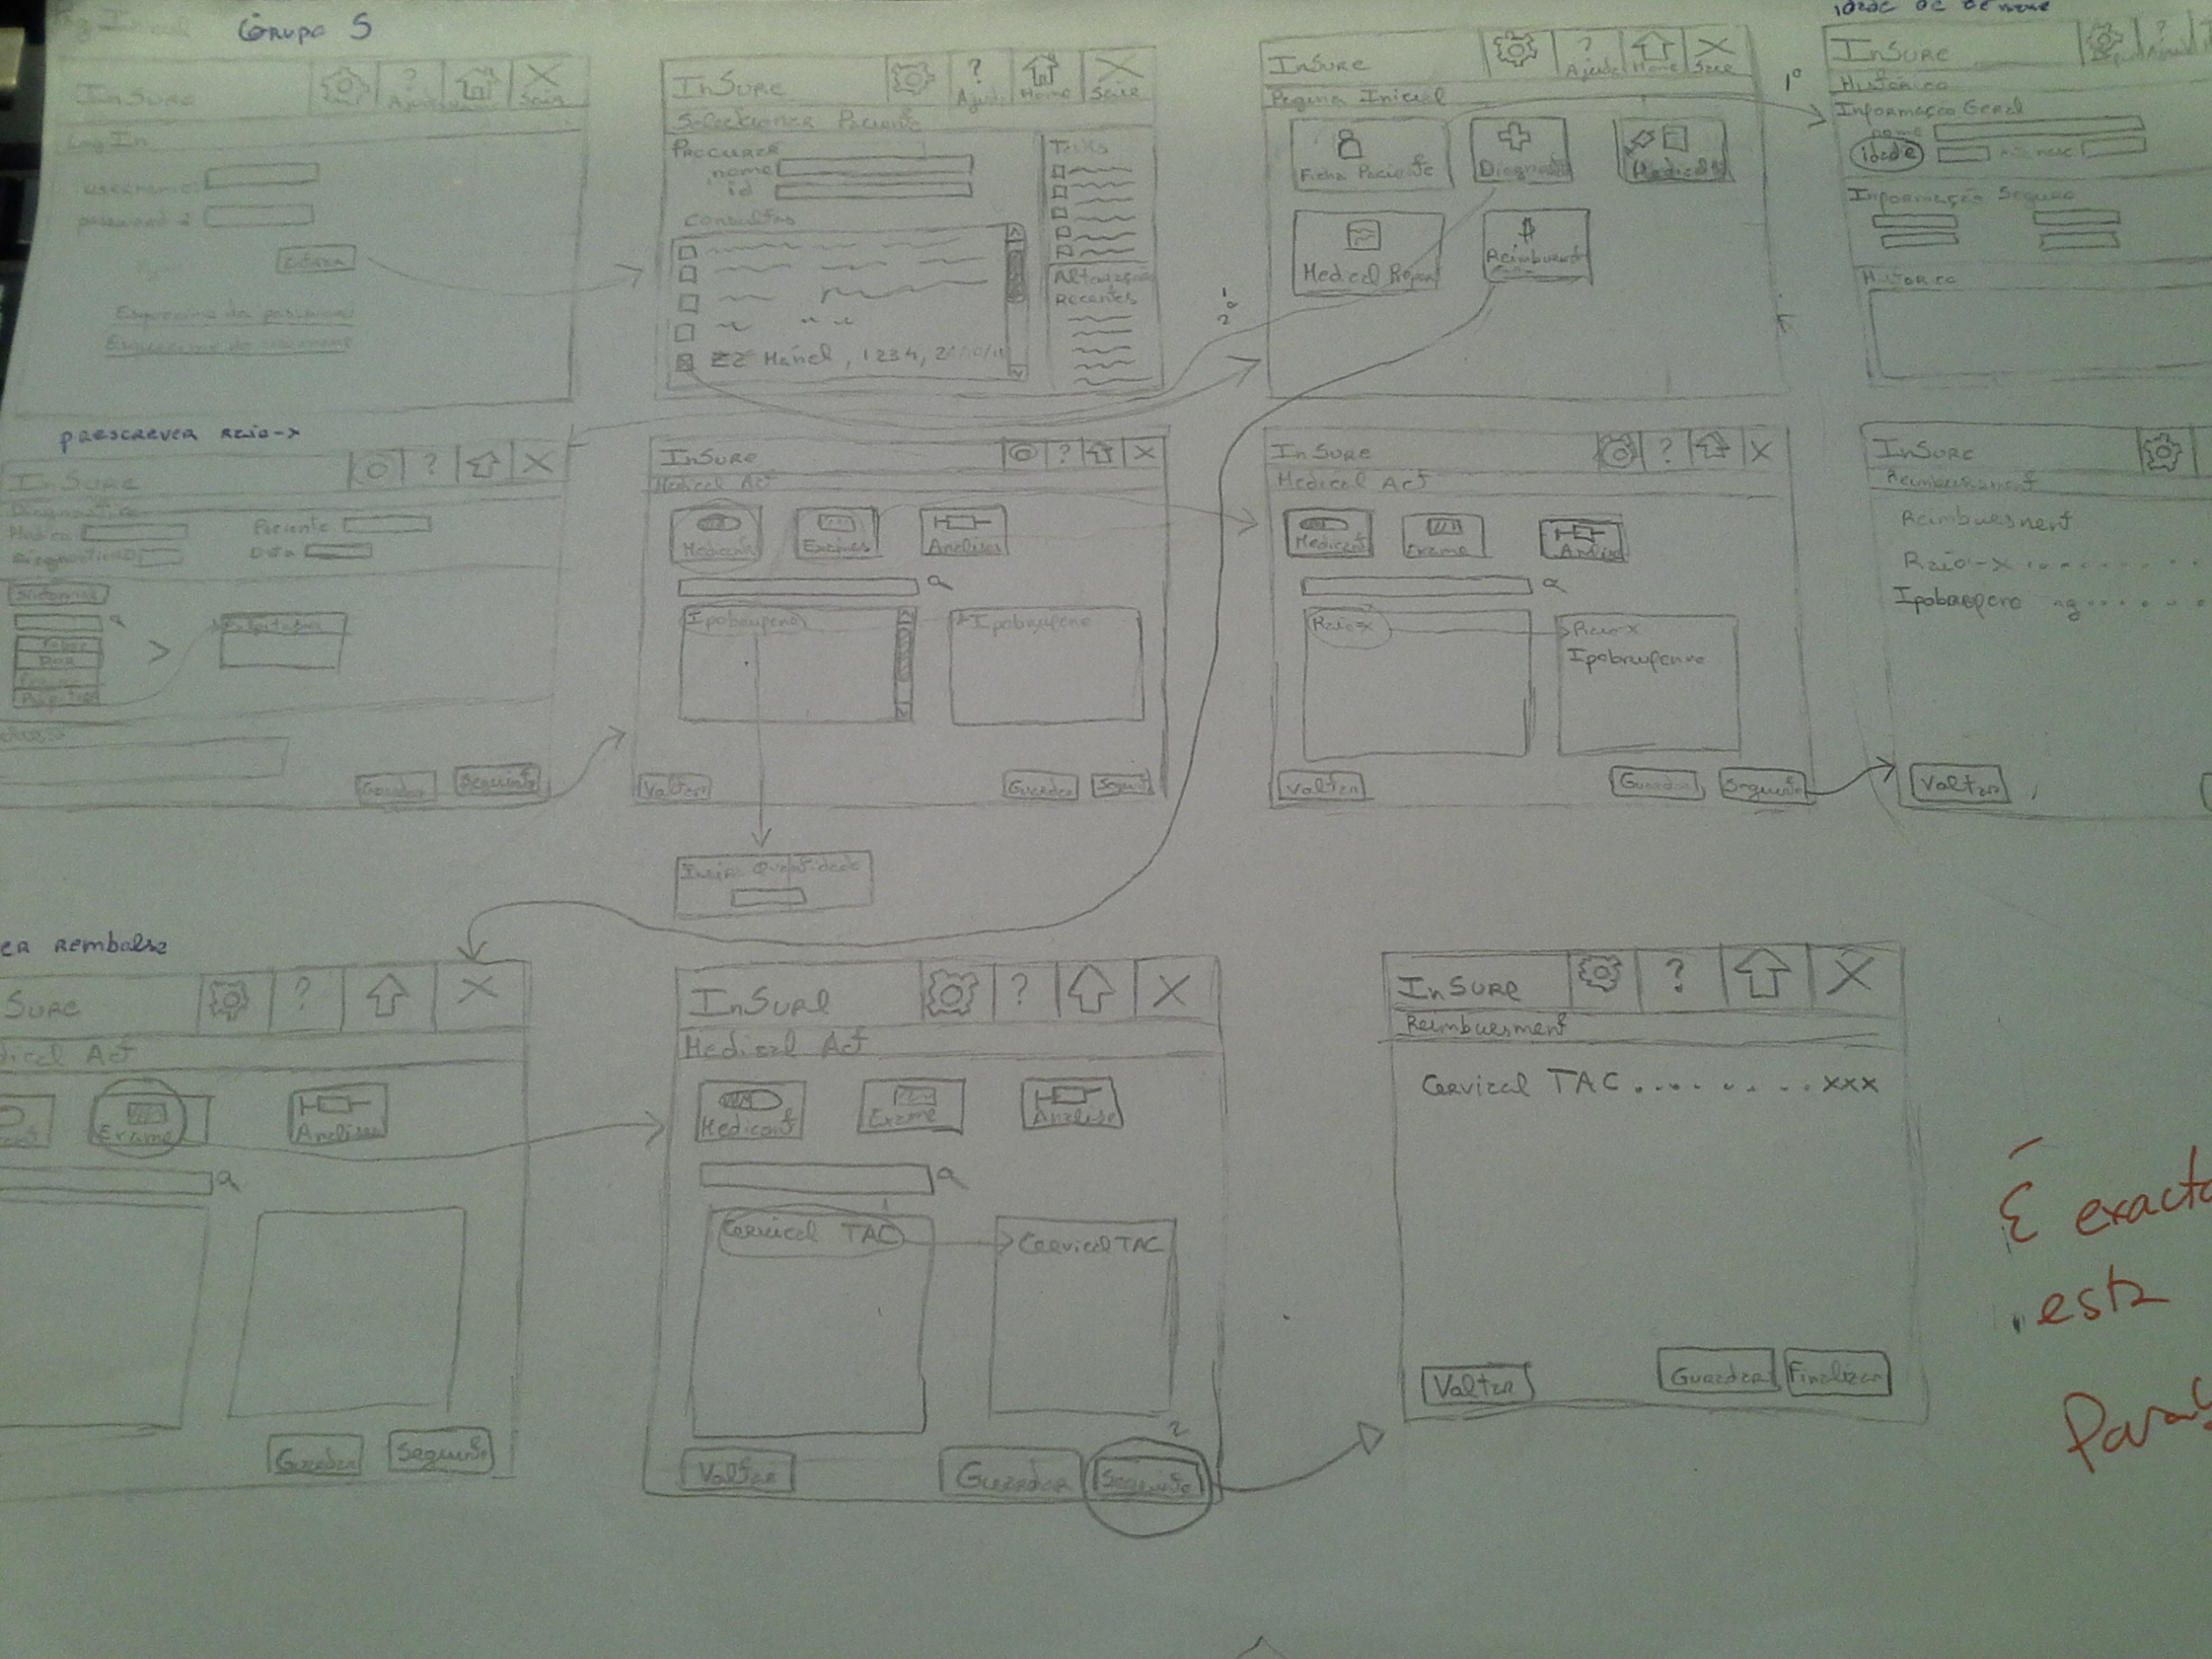 Pg Inicial
Grupo 5
InSure
?
Sair
Log In
username:
password:
Entrar
Esqueci-me da password
Esqueci-me do username
InSure
?
Ajuda
Home
Sair
Seleccionar Paciente
Procurar
nome
id
Consultas
Zé Manel, 1234, 2
Tasks
Recentes
InSure
?
Ajuda
Home
Sair
Pagina Inicial
Ficha Paciente
Diagnost
Medical Act
Medical Report
$
1º
2º
InSure
?
Histórico
Informação Geral
nome
idade
Informação Seguro
Historico
prescrever Raio-x
InSure
?
X
Diagnostico
Medico
Paciente
Diagnostico
Data
Sintomas
Febre
Dor
>
Guardar
Seguinte
InSure
?
X
Medical Act
Medicamt
Exames
Analises
Ipobrufeno
Ipobrufeno
Voltar
Guardar
Seguint
Insira Quantidade
InSure
?
X
Medical Act
Medicamt
Exame
Analise
Raio-x
Raio-x
Ipobrufeno
Voltar
Guardar
Seguinte
InSure
Reimbursment
Reimbuesment
Raio-x . . . . . . .
Ipobrufeno
Voltar
er Rembolso
Sure
?
X
dical Act
Exame
Analise
Guardar
Seguinte
InSure
?
X
Medical Act
Medicamt
Exame
Analise
Cervical TAC
Cervical TAC
2
Voltar
Guardar
Seguinte
InSure
?
X
Reimbuesment
Cervical TAC . . . . . . . . xxx
Voltar
Guardar
Finalizar
É exacta
esta